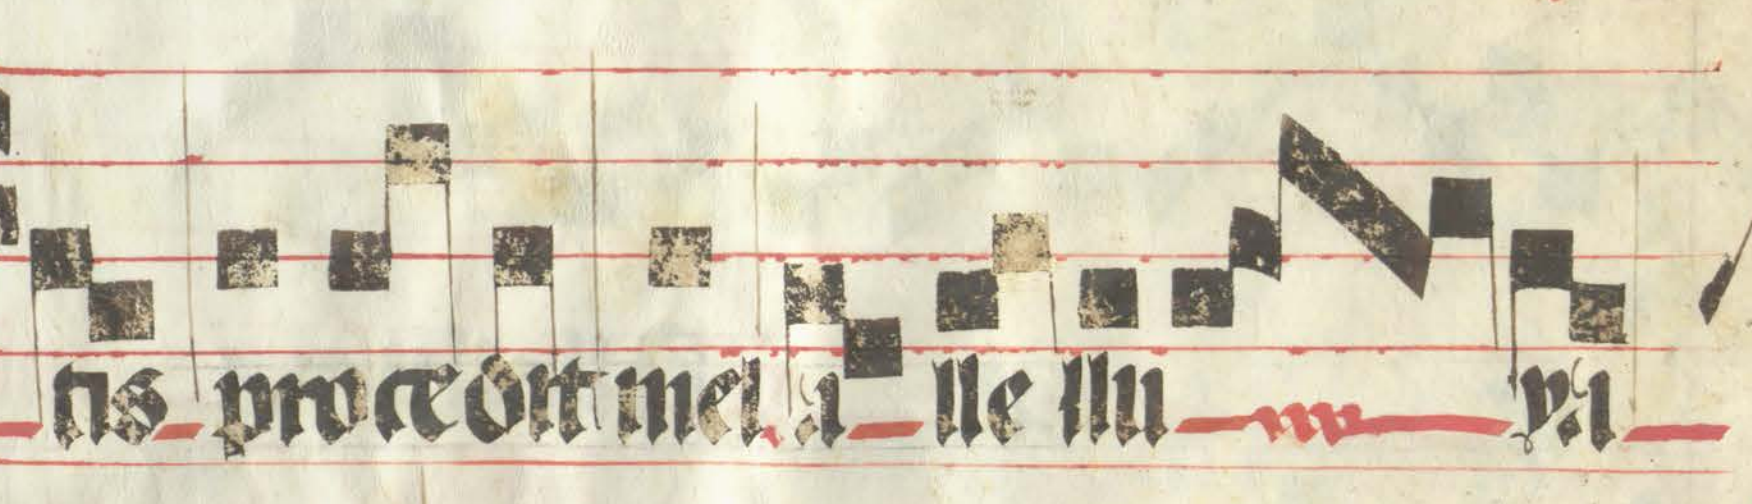 tis procedit mel. a lle llu ya